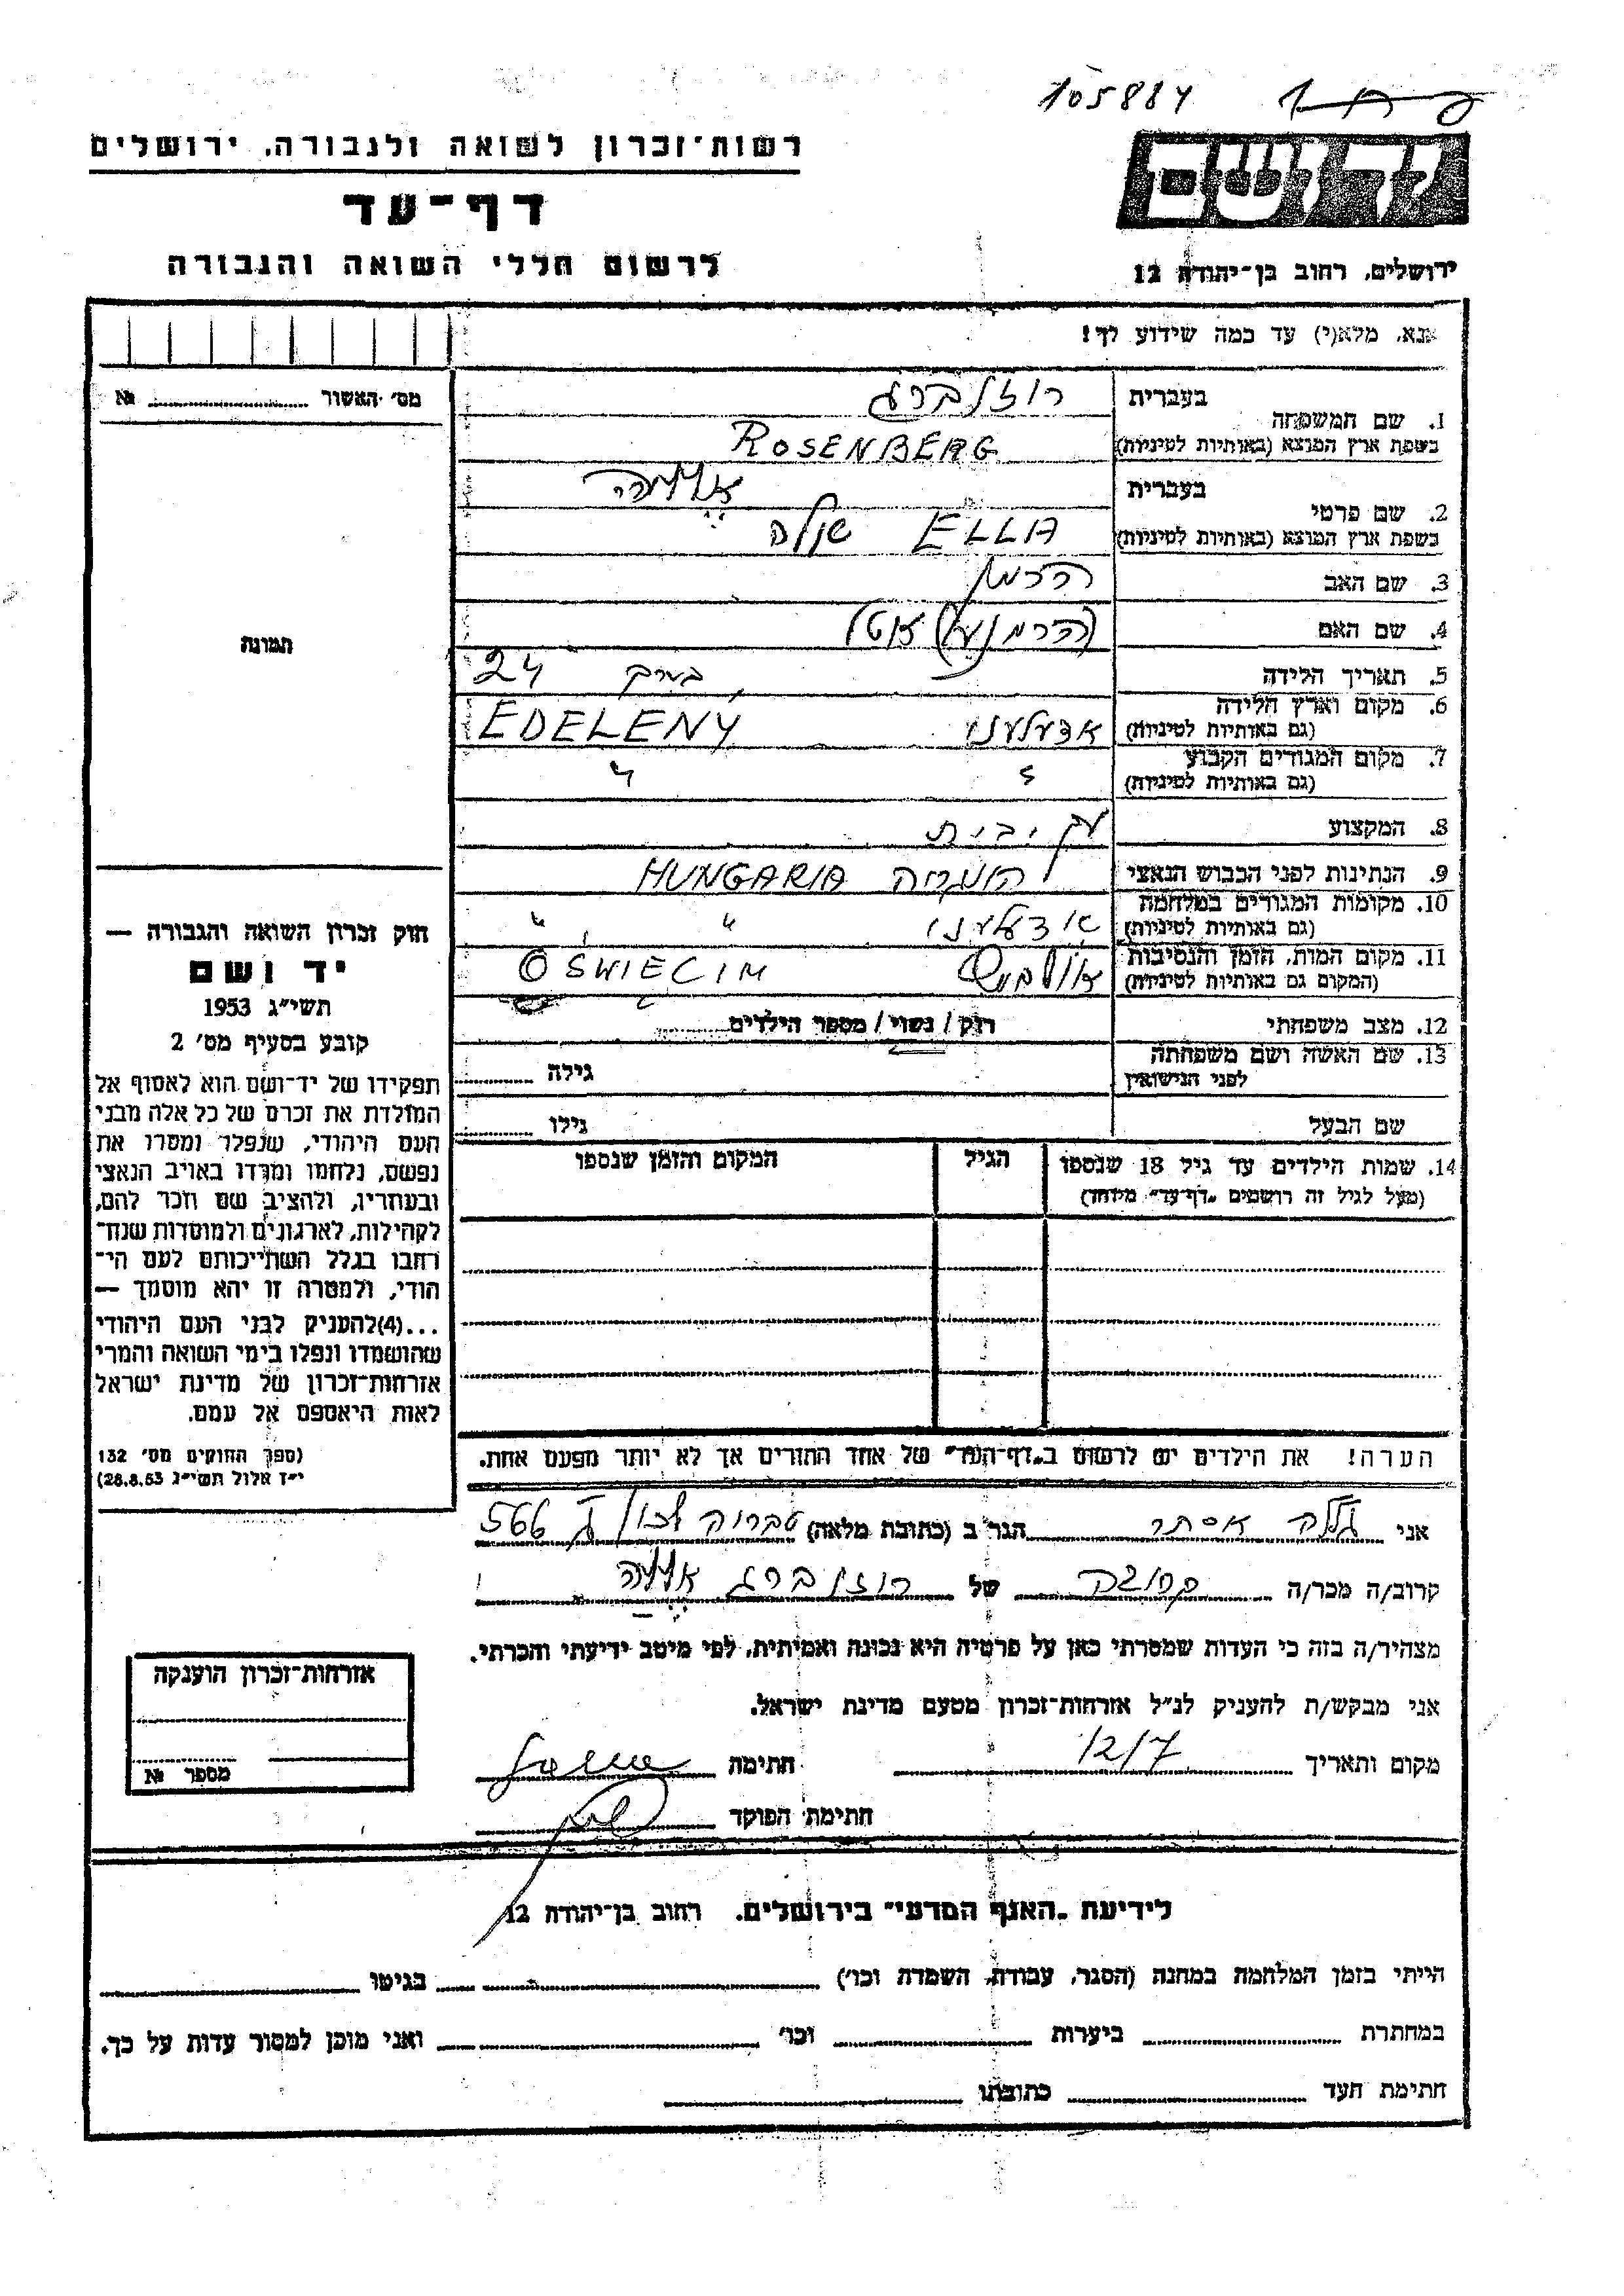 105884
רשות-זכרון לשואה ולגבורה, ירושלים
יד ושם
דף-עד
לרשום חללי השואה והגבורה
ירושלים, רחוב בן-יהודה 12
אנא, מלא(י) עד כמה שידוע לך!
מס' האשור №
1. שם המשפחה
בעברית רוזנברג
בשפת ארץ המוצא (באותיות לטיניות) ROSENBERG
2. שם פרטי
בעברית
בשפת ארץ המוצא (באותיות לטיניות) ELLA
3. שם האב הרמן
4. שם האם
5. תאריך הלידה בערך 24
6. מקום וארץ הלידה
(גם באותיות לטיניות) אדעלעני EDELENY
7. מקום המגורים הקבוע
(גם באותיות לטיניות) " "
8. המקצוע
9. הנתינות לפני הכבוש הנאצי הונגריה HUNGARIA
10. מקומות המגורים במלחמה
(גם באותיות לטיניות) אדעלעני " " "
11. מקום המות, הזמן והנסיבות
(המקום גם באותיות לטיניות) אושביץ OŚWIECIM
12. מצב משפחתי רוק / נשוי / מספר הילדים
13. שם האשה ושם משפחתה
לפני הנישואין גילה
שם הבעל גילו
14. שמות הילדים עד גיל 18 שנספו
(מעל לגיל זה רושמים "דף-עד" מיוחד)
הגיל
המקום והזמן שנספו
הערה! את הילדים יש לרשום ב"דף-העד" של אחד ההורים אך לא יותר מפעם אחת.
תמונה
חוק זכרון השואה והגבורה —
יד ושם
תשי"ג 1953
קובע בסעיף מס' 2
תפקידו של יד-ושם הוא לאסוף אל
המולדת את זכרם של כל אלה מבני
העם היהודי, שנפלו ומסרו את
נפשם, נלחמו ומרדו באויב הנאצי
ובעוזריו, ולהציב שם וזכר להם,
לקהילות, לארגונים ולמוסדות שנח-
רבו בגלל השתייכותם לעם הי-
הודי, ולמטרה זו יהא מוסמך —
...(4)להעניק לבני העם היהודי
שהושמדו ונפלו בימי השואה והמרי
אזרחות-זכרון של מדינת ישראל
לאות היאספם אל עמם.
(ספר החוקים מס' 132
י"ז אלול תשי"ג 28.8.53)
אני אסתר הגר ב (כתובת מלאה) טבריה 566
קרוב/ה מכר/ה קרובה של רוזנברג
מצהיר/ה בזה כי העדות שמסרתי כאן על פרטיה היא נכונה ואמיתית, לפי מיטב ידיעתי והכרתי.
אני מבקש/ת להעניק לנ"ל אזרחות-זכרון מטעם מדינת ישראל.
מקום ותאריך 12/7 חתימה
חתימת הפוקד
אזרחות-זכרון הוענקה
מספר №
לידיעת "האגף המדעי" בירושלים, רחוב בן-יהודה 12
הייתי בזמן המלחמה במחנה (הסגר, עבודה, השמדה וכו') בגיטו
במחתרת ביערות וכו' ואני מוכן למסור עדות על כך.
חתימת העד כתובתו